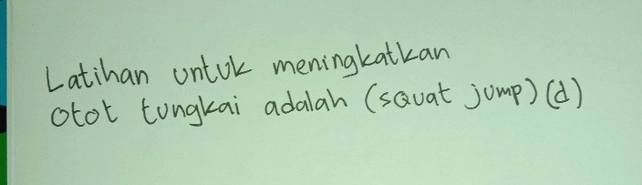 Latihan untuk meningkatkan
otot tungkai adalah (squat jump) (d)